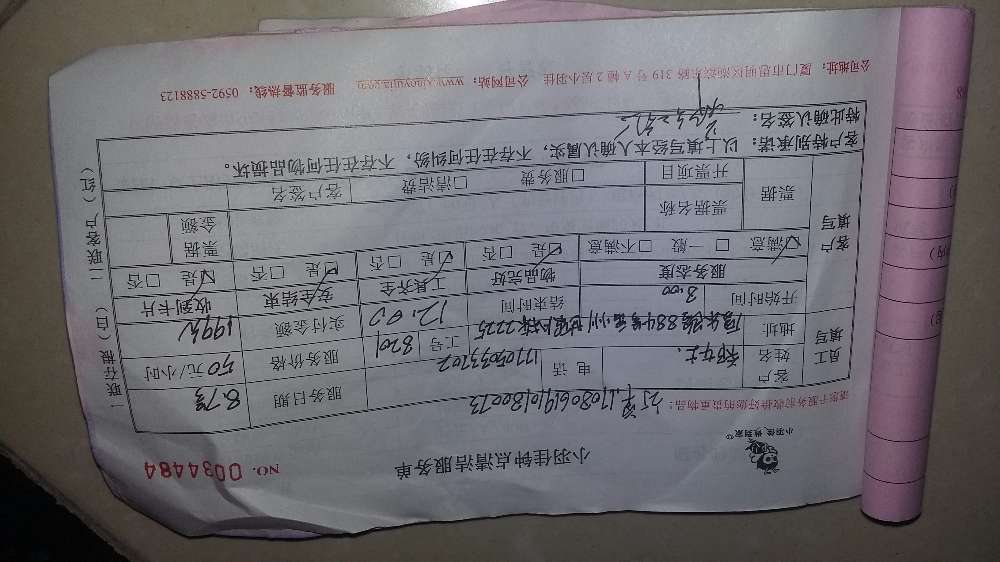 小羽佳 做到家
小羽佳钟点清洁服务单
NO. 0034484
请您于服务前收好您的贵重物品:
员工填写
客户姓名
电话
服务日期
8.7号
地址
工号
8201
服务价格
50元/小时
开始时间
8:00
结束时间
12:00
实付金额
199元
收到卡片
客户填写
服务态度
物品完好
工具齐全
安全结束
☑满意 □一般 □不满意
☑是 □否
☑是 □否
☑是 □否
☑是 □否
票据
票据名称
票据金额
开票项目
□服务费 □清洁费
客户签名
客户特别承诺: 以上填写经本人确认属实,不存在任何纠纷,不存在任何物品损坏。
特此确认签名:
公司地址: 厦门市思明区 319号A幢2层小羽佳 公司网站: www.xiaoyujia.com 服务监督热线: 0592-5888123
一联存根(白) 二联客户(红)